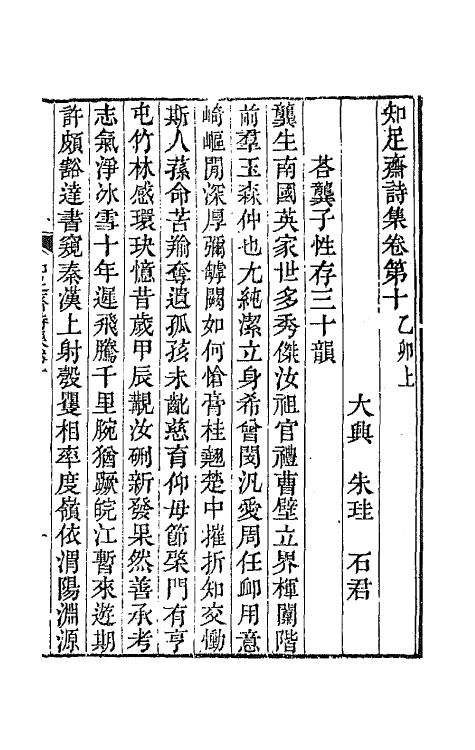 知足齋詩集卷第十 乙卯上
大興 朱珪 石君
荅龔子性存三十韻
龔生南國英家世多秀傑汝祖官禮曹壁立界楎闑階
前羣玉森仲也尤純潔立身希曾閔汎愛周任卹用意
崎嶇閒深厚彌罅闕如何愴膏桂翹楚中摧折知交慟
斯人蓀命苦羭奪遺孤孩未齔慈育仰母節桼門有亨
屯竹林感環玦憶昔歲甲辰覯汝硎新發果然善承考
志氣淨冰雪十年遲飛騰千里腕猶蹶皖江暫來遊期
許頗豁達書窺秦漢上射彀矍相率度嶺依渭陽淵源